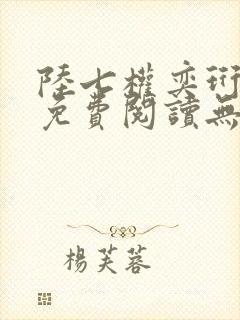 陸七權奕珩
免費閱讀無
楊芙蓉